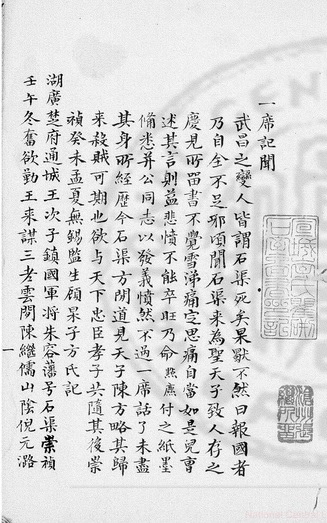 一席記聞
武昌之變人皆謂石渠死矣果獸不然曰報國者
乃自全不足耶頃聞石渠來為聖天子致人存之
慶見所留書不覺雪涕痛定思痛自當如是兒曹
述其言則益悲憤不能卒旺乃命熊廌付之紙墨
備悉并公同志以發義憤然不過一席話了未盡
其身所經歷今石渠方開道見天子陳方略其歸
來殺賊可期也欲與天下忠臣孝子共隨其後崇
禎癸未孟夏無錫監生顧杲子方氏記
湖廣楚府通城王次子鎮國軍將朱容藩号石渠崇禎
壬午冬奮欲勤王來謀三老雲間陳繼儒山陰倪元潞
一